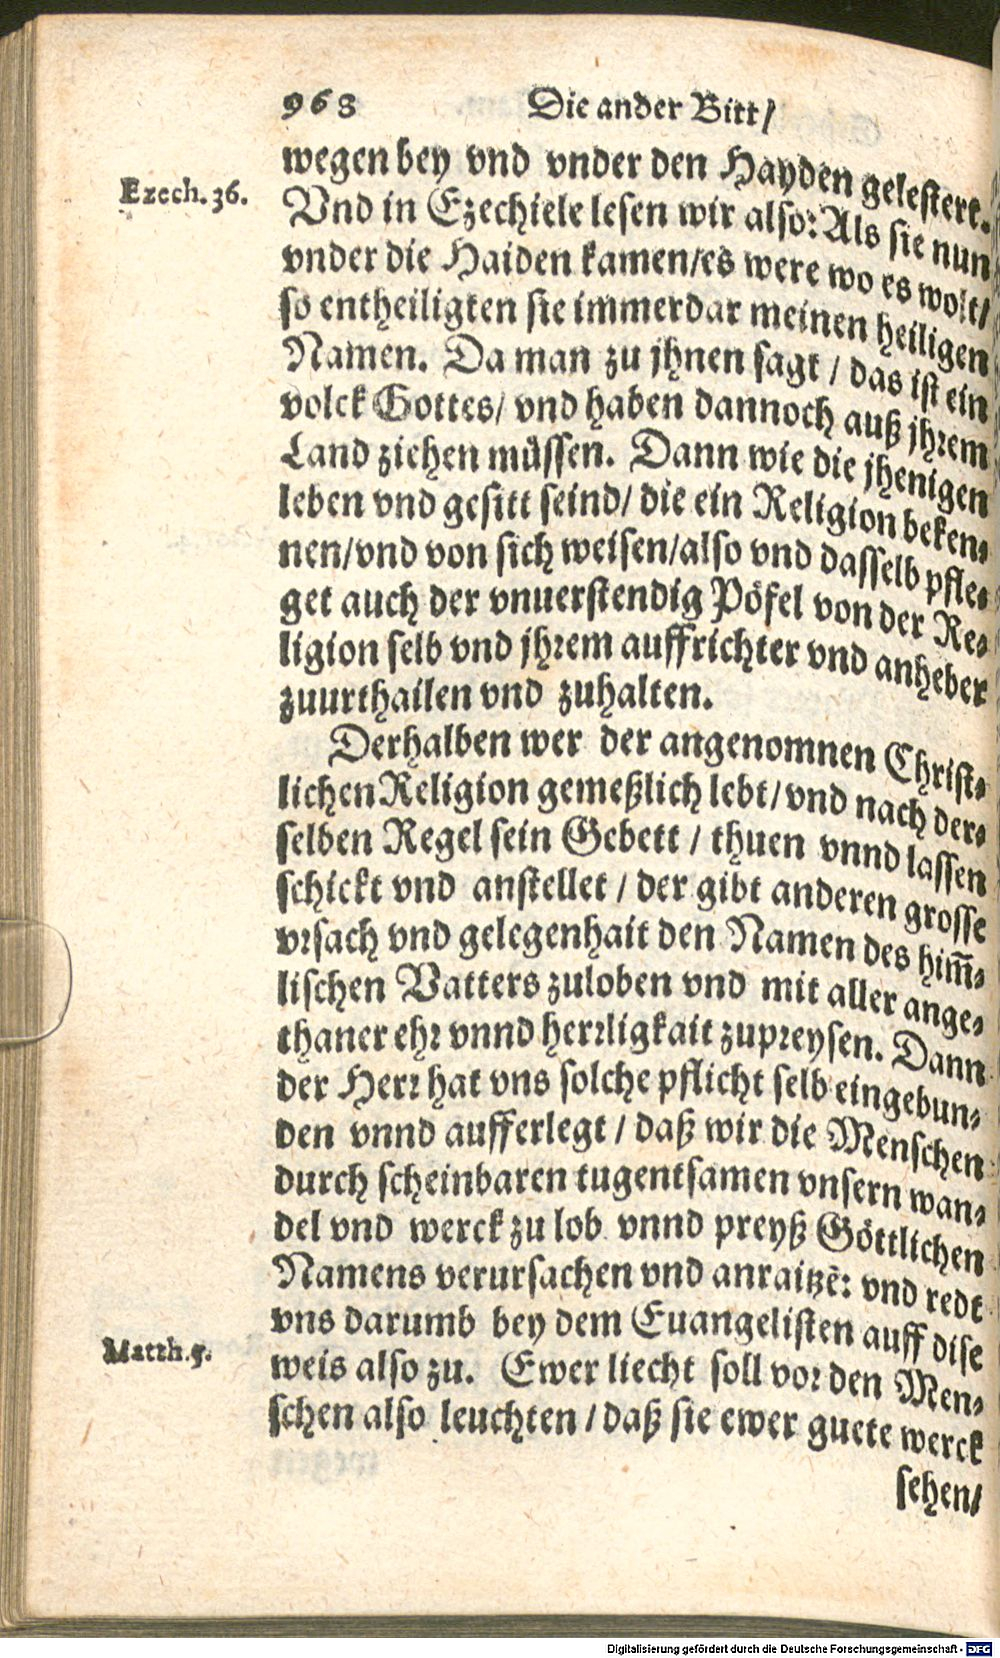 968 Die ander Bitt/
wegen bey vnd vnder den Hayden gelestert.
Ezech. 36.
Vnd in Ezechiele lesen wir also: Als sie nun
vnder die Haiden kamen/es were wo es wolt/
so entheiligten sie immerdar meinen heiligen
Namen. Da man zu jhnen sagt / das ist ein
volck Gottes/ vnd haben dannoch auß jhrem
Land ziehen müssen. Dann wie die jhenigen
leben vnd gesitt seind/ die ein Religion beken-
nen/vnd von sich weisen/also vnd dasselb pfle-
get auch der vnuerstendig Pöfel von der Re-
ligion selb vnd jhrem auffrichter vnd anheber
zuurthailen vnd zuhalten.
Derhalben wer der angenomnen Christ-
lichen Religion gemeßlich lebt/vnd nach der-
selben Regel sein Gebett / thuen vnnd lassen
schickt vnd anstellet / der gibt anderen grosse
vrsach vnd gelegenhait den Namen des him̃-
lischen Vatters zuloben vnd mit aller ange-
thaner ehr vnnd herrligkait zupreysen. Dann
der Herr hat vns solche pflicht selb eingebun-
den vnnd aufferlegt / daß wir die Menschen
durch scheinbaren tugentsamen vnsern wan-
del vnd werck zu lob vnnd preyß Göttlichen
Namens verursachen vnd anraitzẽ: vnd redt
vns darumb bey dem Euangelisten auff dise
Matth. 5.
weis also zu. Ewer liecht soll vor den Men-
schen also leuchten / daß sie ewer guete werck
sehen/
Digitalisierung gefördert durch die Deutsche Forschungsgemeinschaft - DFG